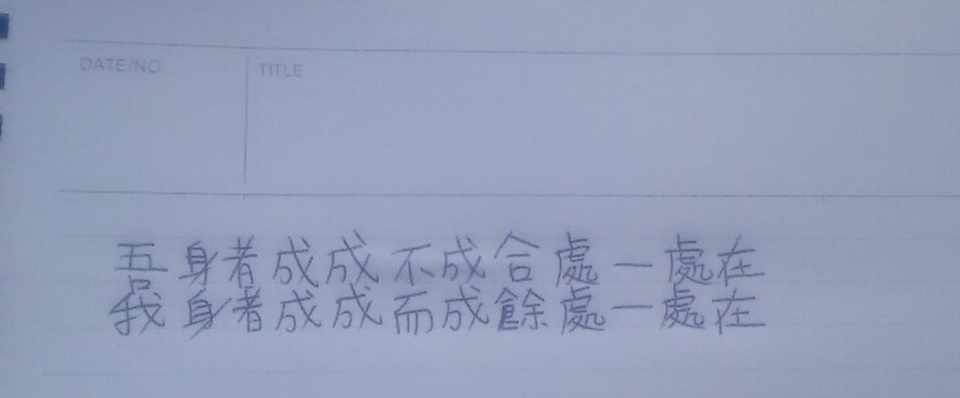 DATE/NO TITLE
吾身者成成不成合處一處在
我身者成成而成餘處一處在